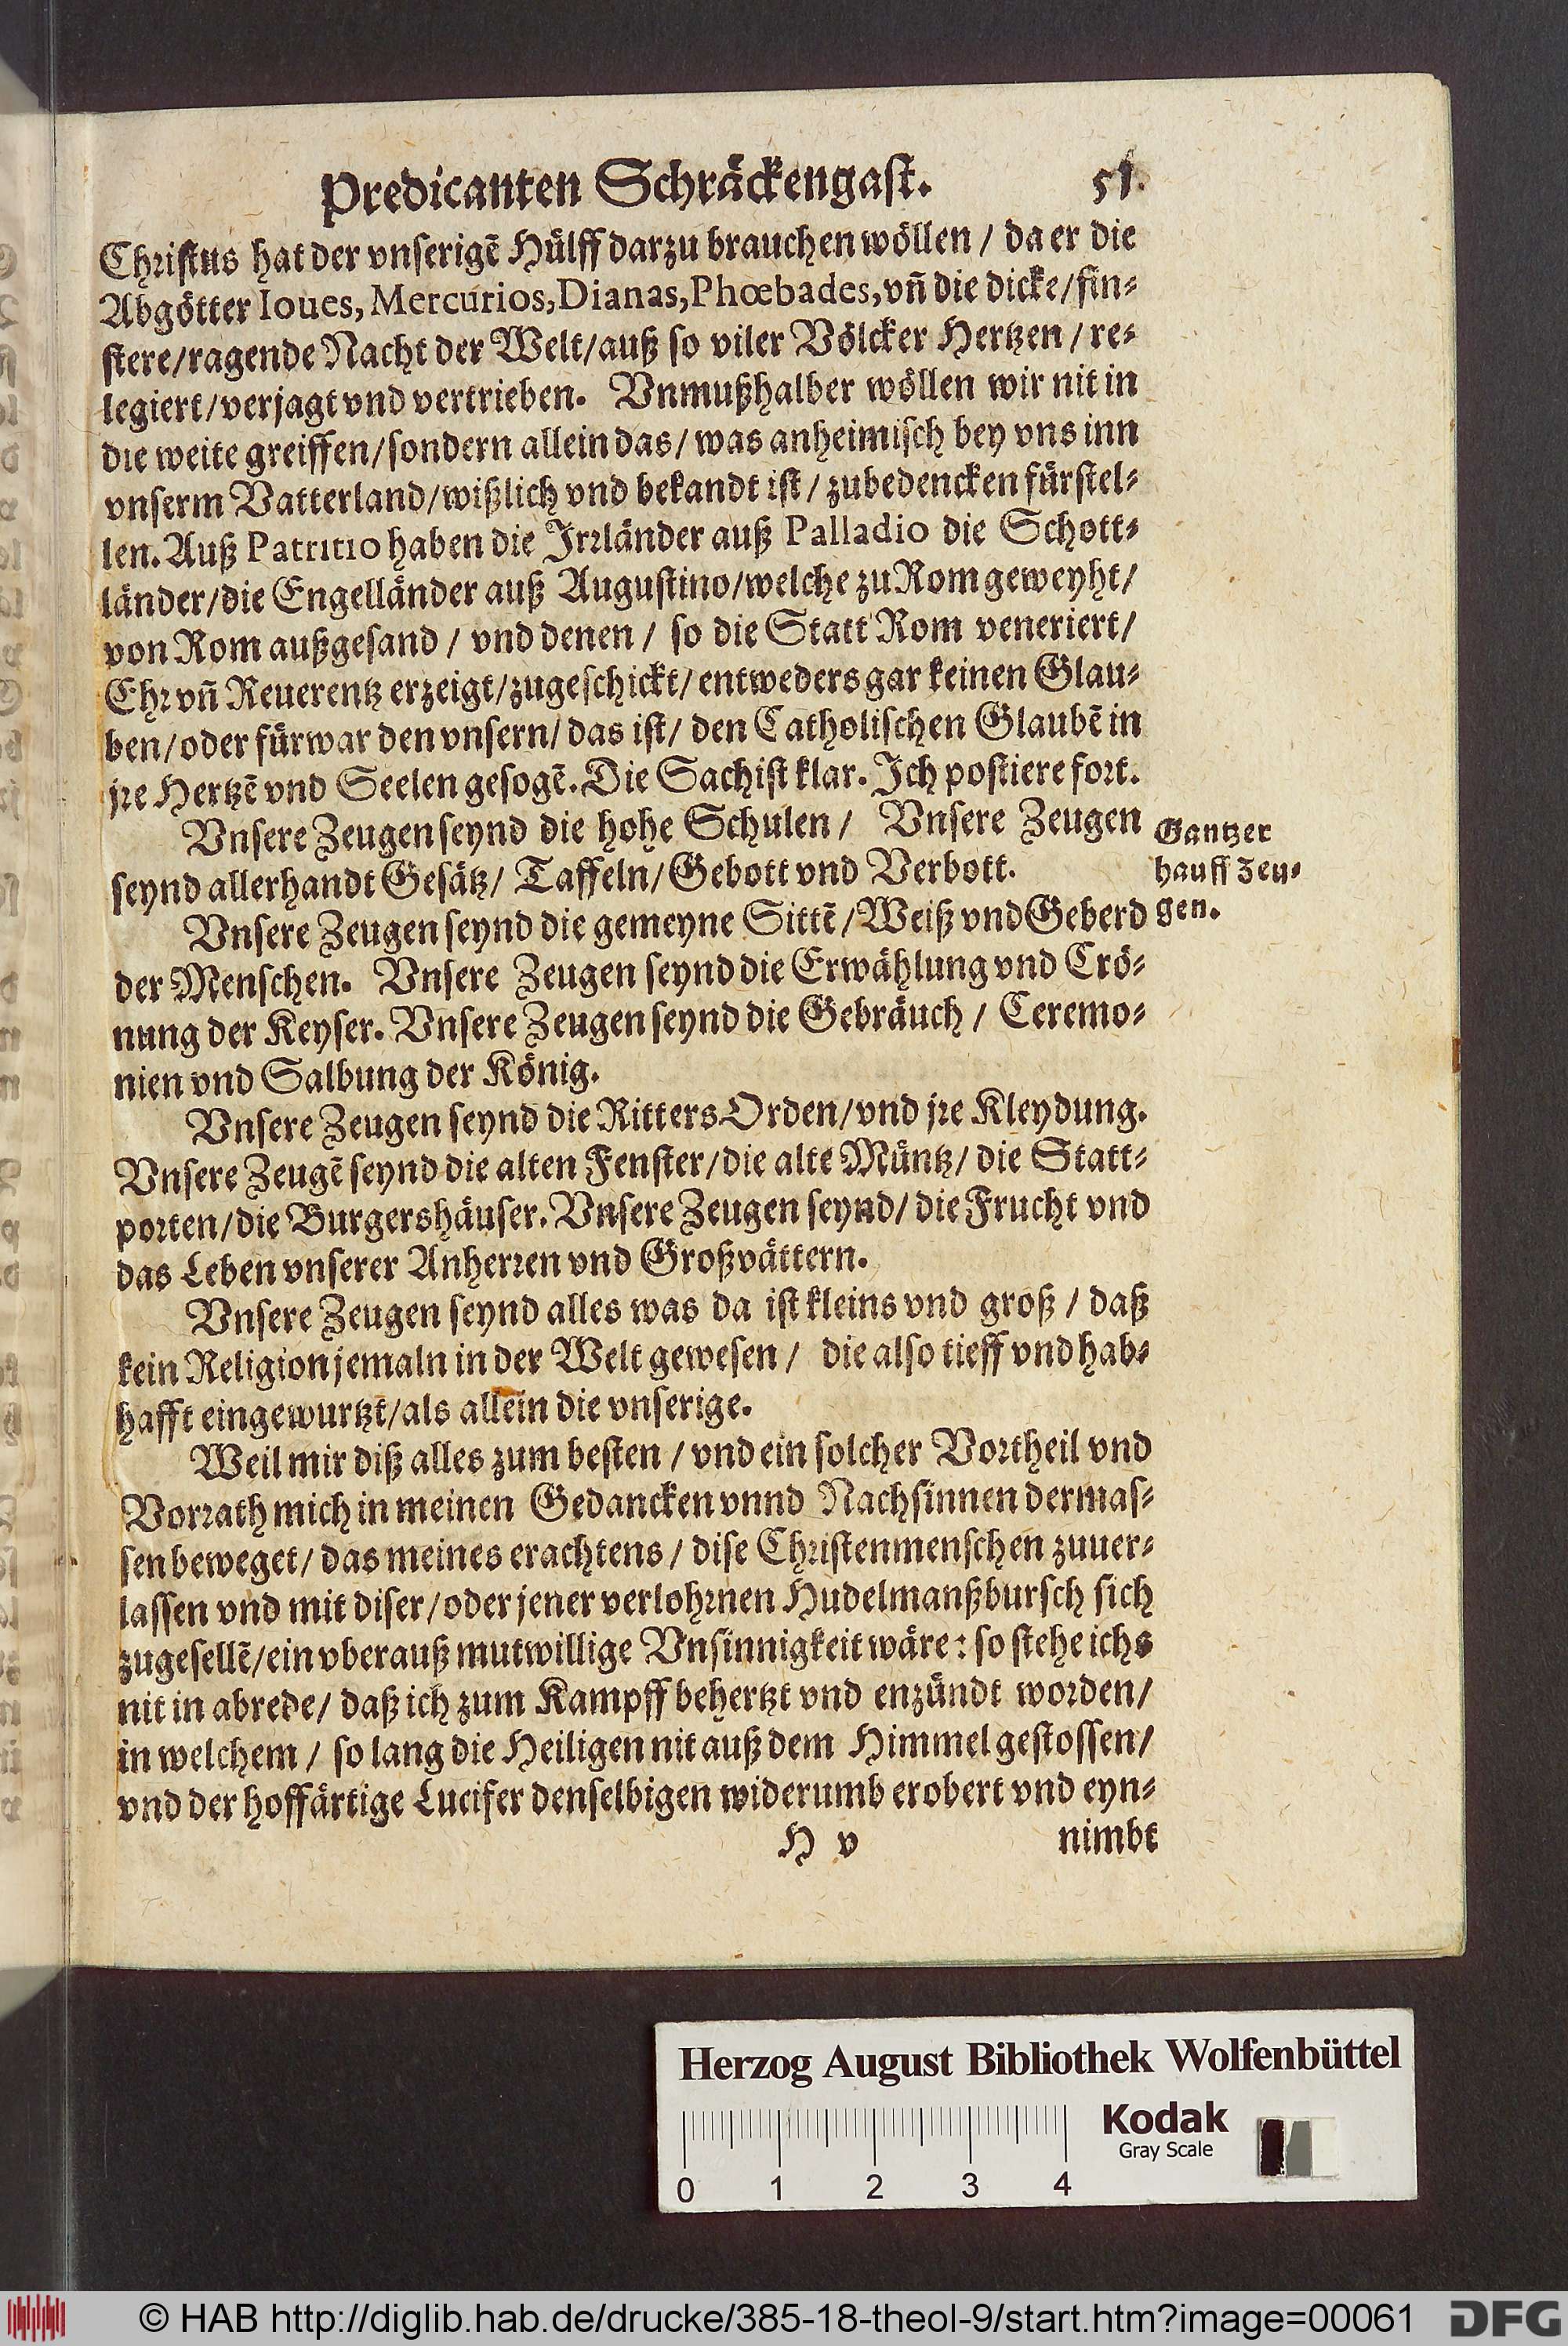 Predicanten Schräckengast. 51.
Christus hat der vnserigẽ Hülff darzu brauchen wöllen / da er die
Abgötter Ioues, Mercurios, Dianas, Phœbades, vñ die dicke / fin⸗
stere / ragende Nacht der Welt / auß so viler Völcker Hertzen / re⸗
legiert / verjagt vnd vertrieben. Vnmußhalber wöllen wir nit in
die weite greiffen / sondern allein das / was anheimisch bey vns inn
vnserm Vatterland / wißlich vnd bekandt ist / zubedencken fürstel⸗
len. Auß Patritio haben die Irrländer auß Palladio die Schott⸗
länder / die Engelländer auß Augustino / welche zu Rom geweyht /
von Rom außgesand / vnd denen / so die Statt Rom veneriert /
Ehr vñ Reuerentz erzeigt / zugeschickt / entweders gar keinen Glau⸗
ben / oder fürwar den vnsern / das ist / den Catholischen Glaubẽ in
jre Hertzẽ vnd Seelen gesogẽ. Die Sach ist klar. Ich postiere fort.
Vnsere Zeugen seynd die hohe Schulen / Vnsere Zeugen
seynd allerhandt Gesätz / Taffeln / Gebott vnd Verbott.
Gantzer
hauff Zeu⸗
gen.
Vnsere Zeugen seynd die gemeyne Sittẽ / Weiß vnd Geberd
der Menschen. Vnsere Zeugen seynd die Erwählung vnd Crö⸗
nung der Keyser. Vnsere Zeugen seynd die Gebräuch / Ceremo⸗
nien vnd Salbung der König.
Vnsere Zeugen seynd die Ritters Orden / vnd jre Kleydung.
Vnsere Zeugẽ seynd die alten Fenster / die alte Müntz / die Statt⸗
porten / die Burgershäuser. Vnsere Zeugen seynd / die Frucht vnd
das Leben vnserer Anherren vnd Großvättern.
Vnsere Zeugen seynd alles was da ist kleins vnd groß / daß
kein Religion jemaln in der Welt gewesen / die also tieff vnd hab⸗
hafft eingewurtzt / als allein die vnserige.
Weil mir diß alles zum besten / vnd ein solcher Vortheil vnd
Vorrath mich in meinen Gedancken vnnd Nachsinnen dermas⸗
sen beweget / das meines erachtens / dise Christenmenschen zuuer⸗
lassen vnd mit diser / oder jener verlohrnen Hudelmanßbursch sich
zugesellẽ / ein vberauß mutwillige Vnsinnigkeit wäre: so stehe ichs
nit in abrede / daß ich zum Kampff behertzt vnd enzündt worden /
in welchem / so lang die Heiligen nit auß dem Himmel gestossen /
vnd der hoffärtige Lucifer denselbigen widerumb erobert vnd eyn⸗
H v nimbt
Herzog August Bibliothek Wolfenbüttel
Kodak
Gray Scale
0 1 2 3 4
© HAB http://diglib.hab.de/drucke/385-18-theol-9/start.htm?image=00061 DFG